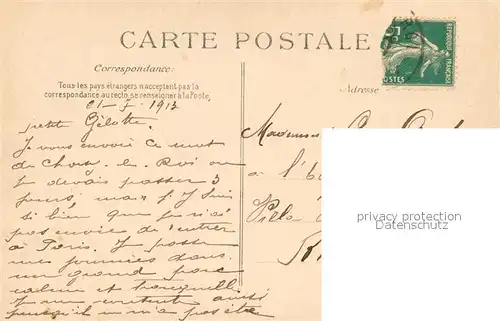 CARTE POSTALE
Correspondance:
Tous les pays étrangers n'acceptent pas la
correspondance au recto, se renseigner à la Poste.
Adresse
REPUBLIQUE FRANÇAISE
POSTES
21-5-1913
petite Gélotte.
Je vous envoie ce mot
de Choisy-le-Roi ou
je devais passer 3
jours, mais j'y suis
si bien que je n'ai
pas envie de rentrer
à Paris. J'y passe
mes journées dans
un grand parc
calme et tranquille.
J'y suis contente aussi
puisqu'il
Madame
à l'
Villa
privacy protection
Datenschutz